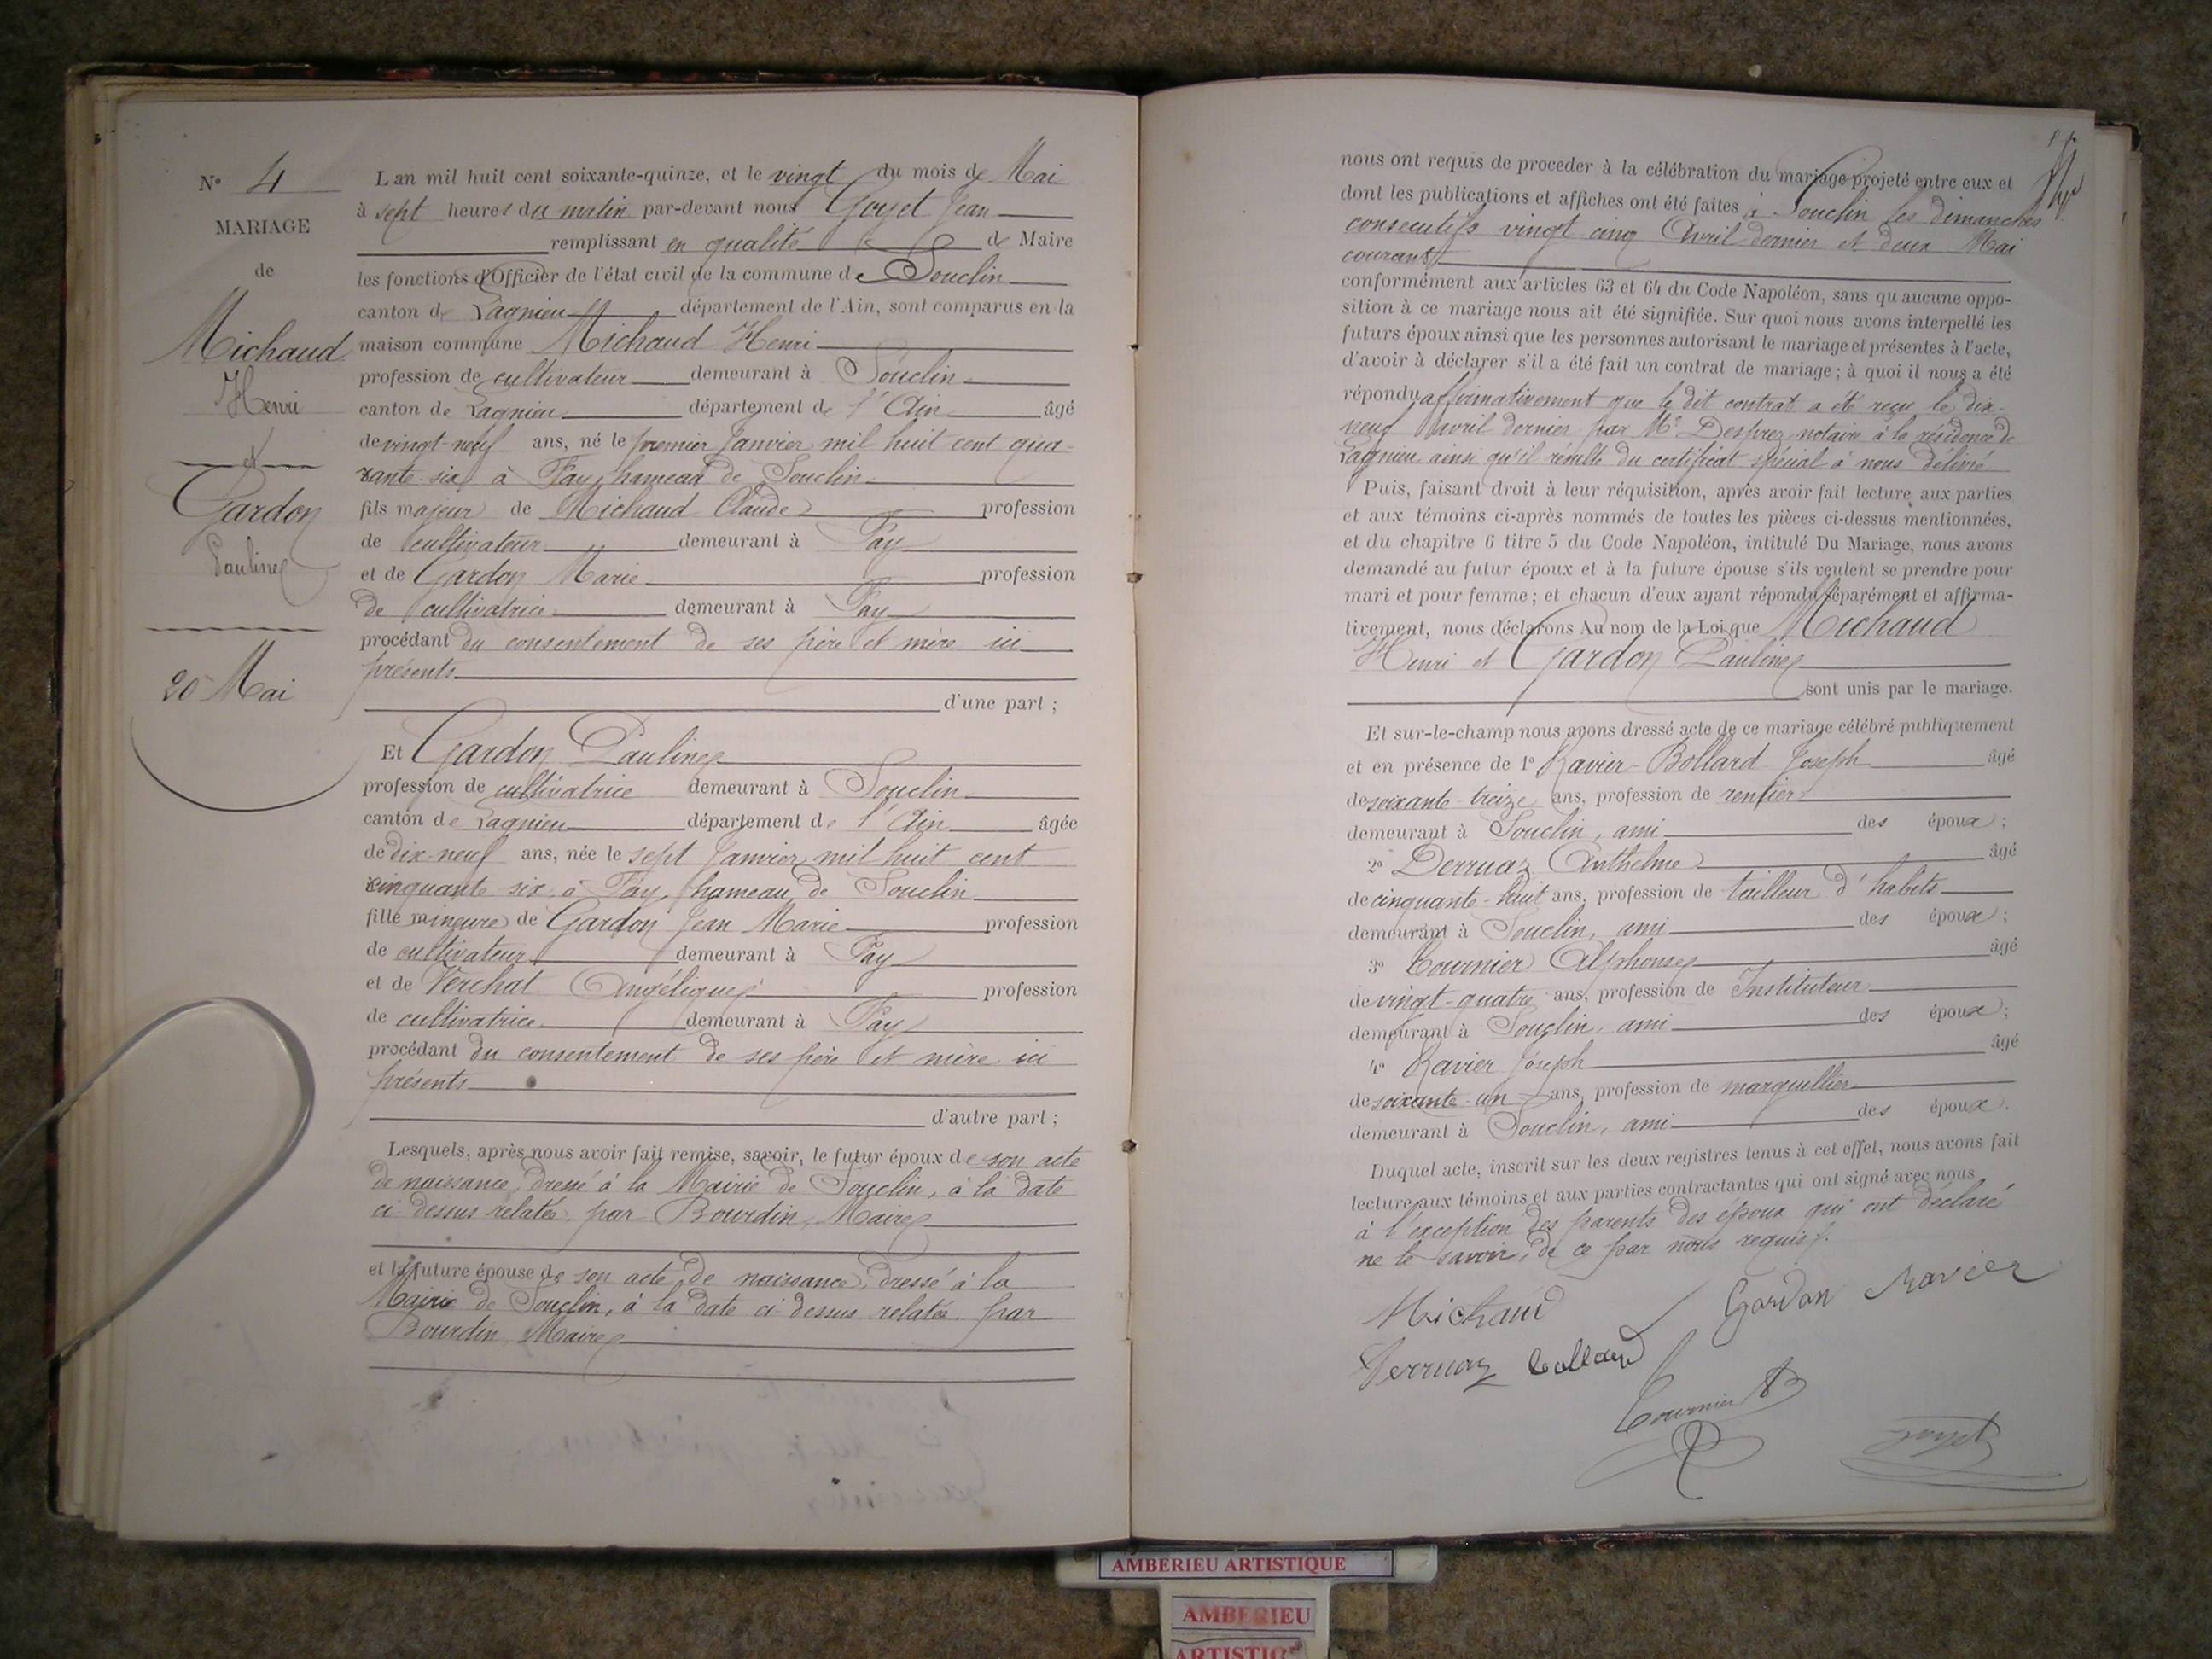 N° 4
MARIAGE
de
Michaud
Henri
et
Gardon
Pauline
20 Mai
L an mil huit cent soixante-quinze, et le vingt du mois de Mai
à sept heures du matin par-devant nous Goyet Jean
remplissant en qualité de Maire
les fonctions d'Officier de l'état civil de la commune de Souclin
canton de Lagnieu département de l'Ain, sont comparus en la
maison commune Michaud Henri
profession de cultivateur demeurant à Souclin
canton de Lagnieu département de l'Ain âgé
de vingt-neuf ans, né le premier Janvier mil huit cent qua-
rante-six à Fay, hameau de Souclin
fils majeur de Michaud Claude profession
de cultivateur demeurant à Fay
et de Gardon Marie profession
de cultivatrice demeurant à Fay
procédant du consentement de ses père et mère ici
présents
d'une part ;
Et Gardon Pauline
profession de cultivatrice demeurant à Souclin
canton de Lagnieu département de l'Ain âgée
de dix-neuf ans, née le sept Janvier mil huit cent
cinquante six à Fay, hameau de Souclin
fille mineure de Gardon Jean Marie profession
de cultivateur demeurant à Fay
et de Verchat Angélique profession
de cultivatrice demeurant à Fay
procédant du consentement de ses père et mère ici
présents
d'autre part ;
Lesquels, après nous avoir fait remise, savoir, le futur époux de son acte
de naissance, dressé à la Mairie de Souclin, à la date
ci dessus relatée par Bourdin, Maire
et la future épouse de son acte de naissance, dressé à la
Mairie de Souclin, à la date ci dessus relatée par
Bourdin, Maire
nous ont requis de proceder à la célébration du mariage projeté entre eux et
dont les publications et affiches ont été faites à Souclin les dimanches
consecutifs vingt cinq Avril dernier et deux Mai
courant
conformément aux articles 63 et 64 du Code Napoléon, sans qu aucune oppo-
sition à ce mariage nous ait été signifiée. Sur quoi nous avons interpellé les
futurs époux ainsi que les personnes autorisant le mariage et présentes à l'acte,
d'avoir à déclarer s'il a été fait un contrat de mariage ; à quoi il nous a été
répondu affirmativement que le dit contrat a été reçu le dix-
neuf Avril dernier par Me Desprez notaire à la résidence de
Lagnieu ainsi qu'il résulte du certificat spécial à nous délivré
Puis, faisant droit à leur réquisition, après avoir fait lecture aux parties
et aux témoins ci-après nommés de toutes les pièces ci-dessus mentionnées,
et du chapitre 6 titre 5 du Code Napoléon, intitulé Du Mariage, nous avons
demandé au futur époux et à la future épouse s'ils veulent se prendre pour
mari et pour femme ; et chacun d'eux ayant répondu séparément et affirma-
tivement, nous déclarons Au nom de la Loi que Michaud
Henri et Gardon Pauline
sont unis par le mariage.
Et sur-le-champ nous avons dressé acte de ce mariage célébré publiquement
et en présence de 1° Ravier-Bollard Joseph âgé
de soixante-treize ans, profession de rentier
demeurant à Souclin, ami des époux ;
2° Derruaz Anthelme âgé
de cinquante-huit ans, profession de tailleur d'habits
demeurant à Souclin, ami des époux ;
3° Tournier Alphonse âgé
de vingt-quatre ans, profession de Instituteur
demeurant à Souclin, ami des époux ;
4° Ravier Joseph âgé
de soixante-un ans, profession de marguillier
demeurant à Souclin, ami des époux.
Duquel acte, inscrit sur les deux registres tenus à cet effet, nous avons fait
lecture aux témoins et aux parties contractantes qui ont signé avec nous
à l'exception des parents des époux qui ont déclaré
ne le savoir, de ce par nous requis.
Michaud Gardon Ravier
Derruaz Bollard
Tournier
Goyet
AMBERIEU ARTISTIQUE
AMBERIEU